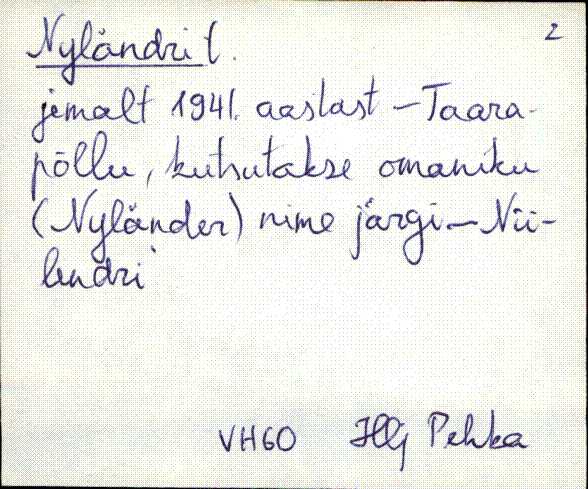 2
Nyländri t.
jemalt 1941. aastast – Taara-
põllu, kutsutakse omaniku
(Nyländer) nime järgi – Nii-
lendri
VH60 Pehka